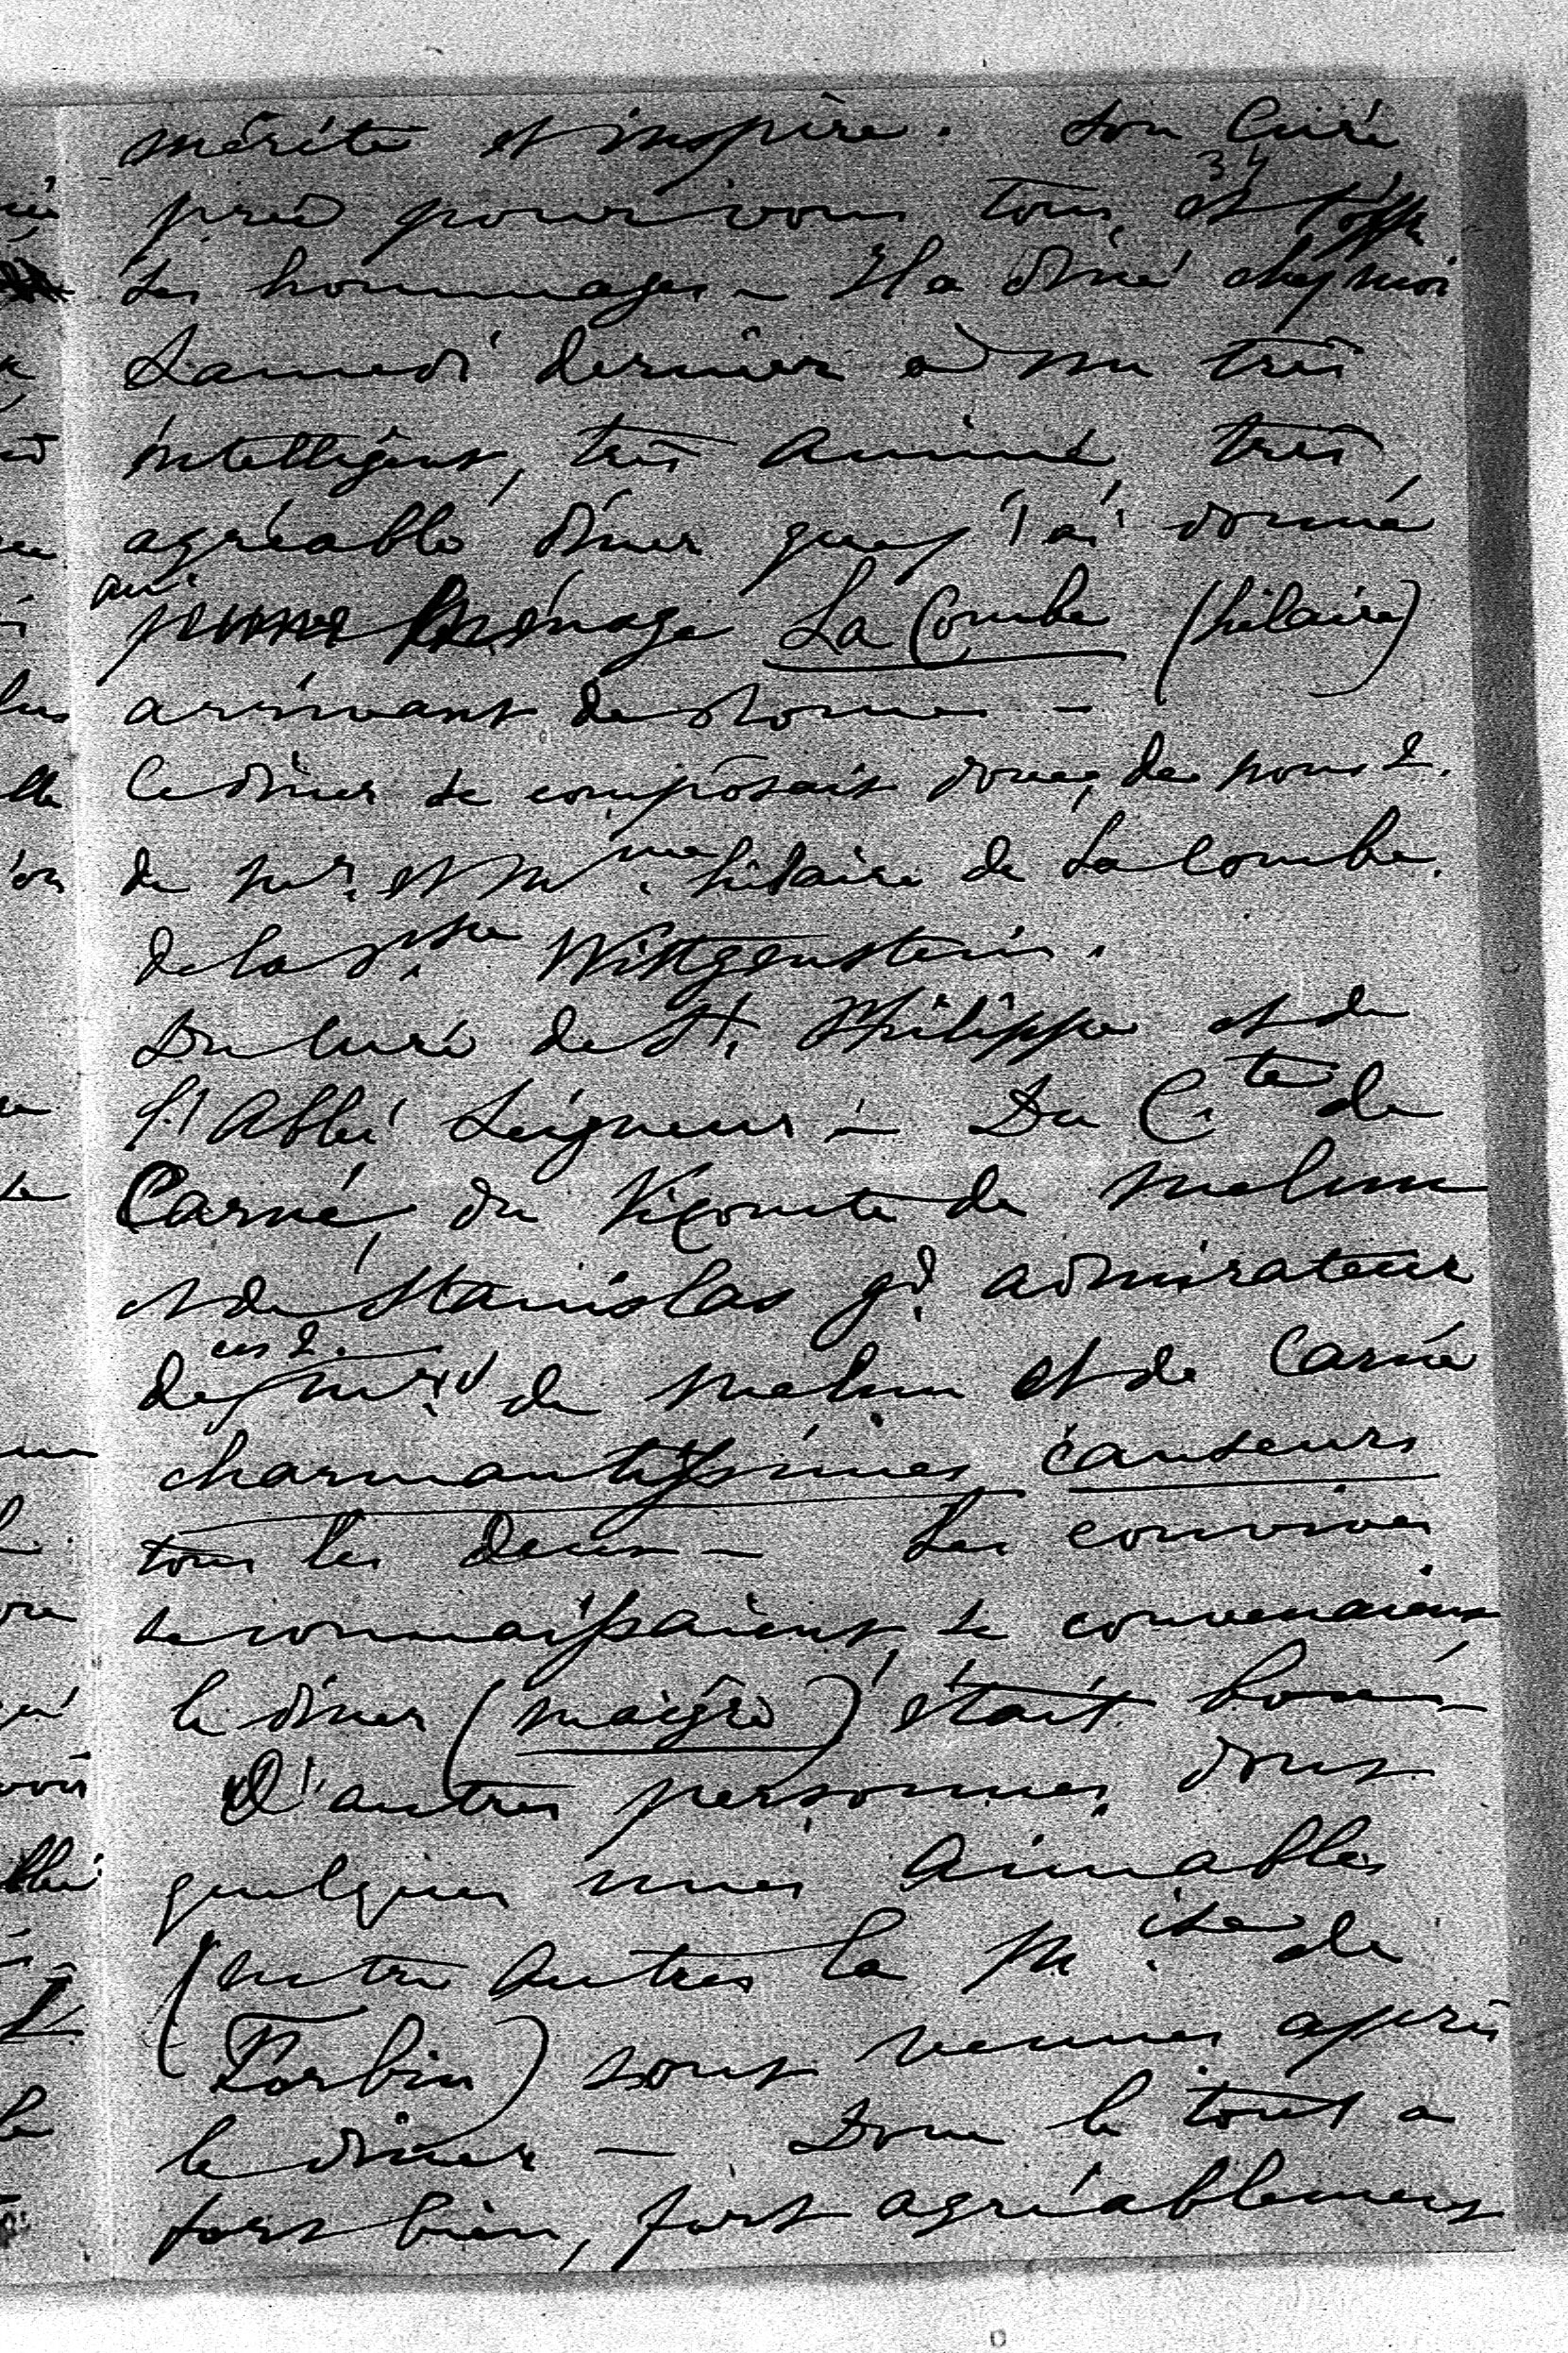 mérite et inspire. Son Curé
34
prie pour vous tous et t'offre
ses hommages – Il a dîné chez moi
Samedi dernier à un très
intelligent, très animé, très
agréable dîner que j'ai donné
au
jeune ménage La Combe (hilaire)
arrivant de Rome –
Ce dîner se composait donc, de nous 2.
de Mr. et Mme. hilaire de La Combe.
de la Psse. Wittgenstein.
Du Curé de St. Philippe et de
l'Abbé Seigneur – Du Cte de
Carné, du Vicomte de Melun
et de Stanislas gd. admirateur
ces 2.
de Mrs de Melun et de Carné
charmantissimes causeurs
tous les deux – Les convives
se connaissaient, se convenaient
le dîner (maigre) était bon –
D'autres personnes, dont
quelques unes aimables
(entre autres la Mise de
Forbin) sont venues après
le dîner – Donc le tout a
fort bien, fort agréablement